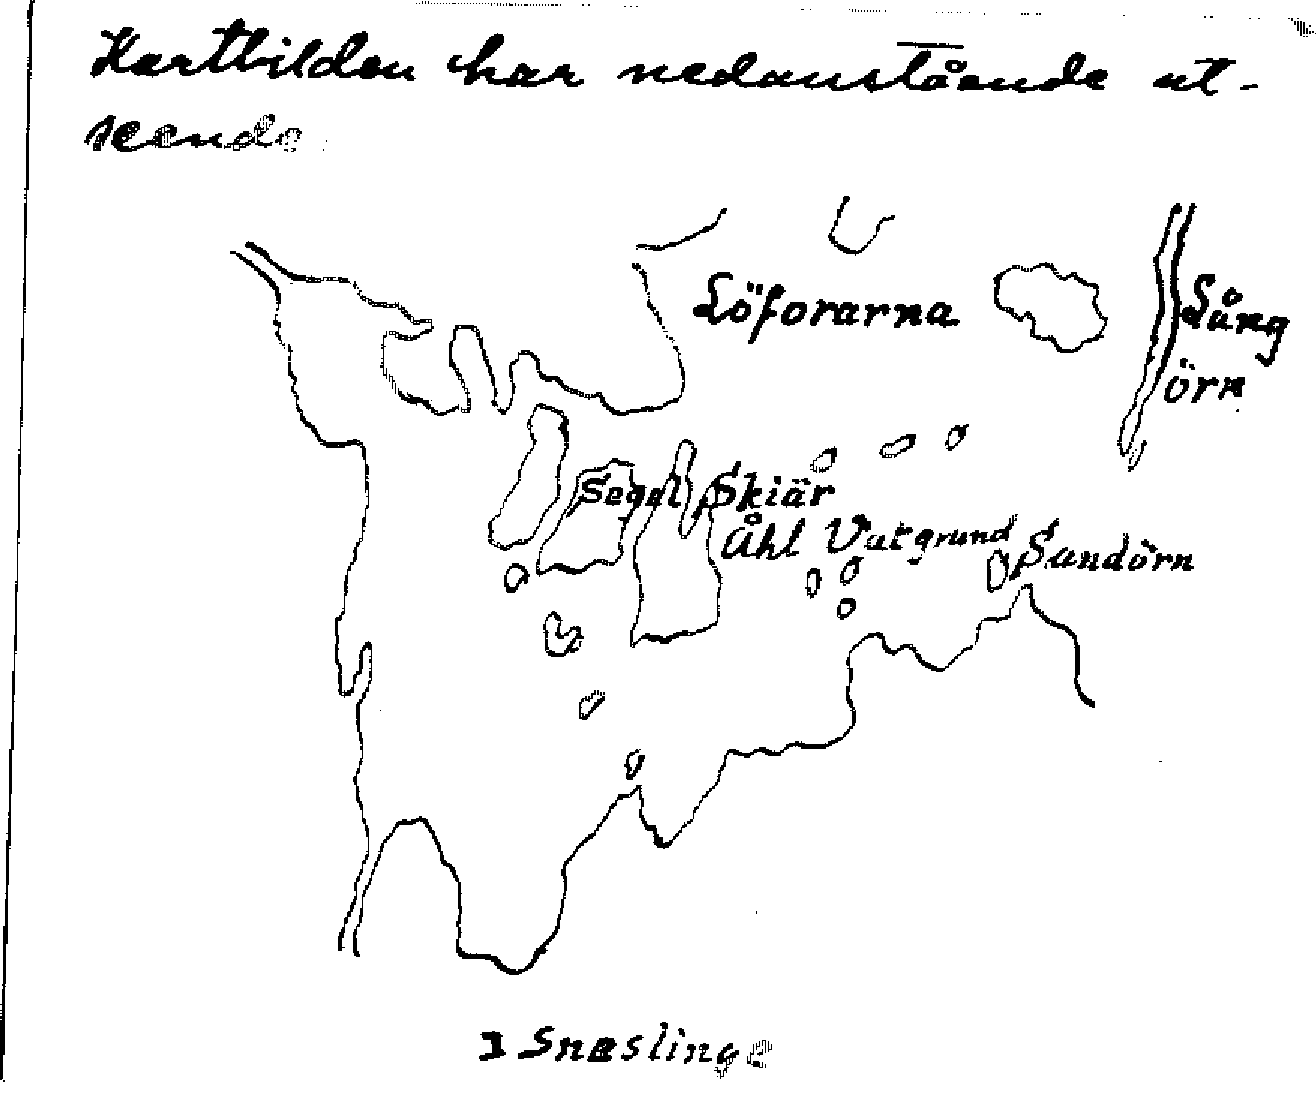 Kartbilden har nedanstående ut-
seende
Löforarna
Lång
örn
Segel Skiär
Åhl Vatgrund Sandörn
1 Snæslinge